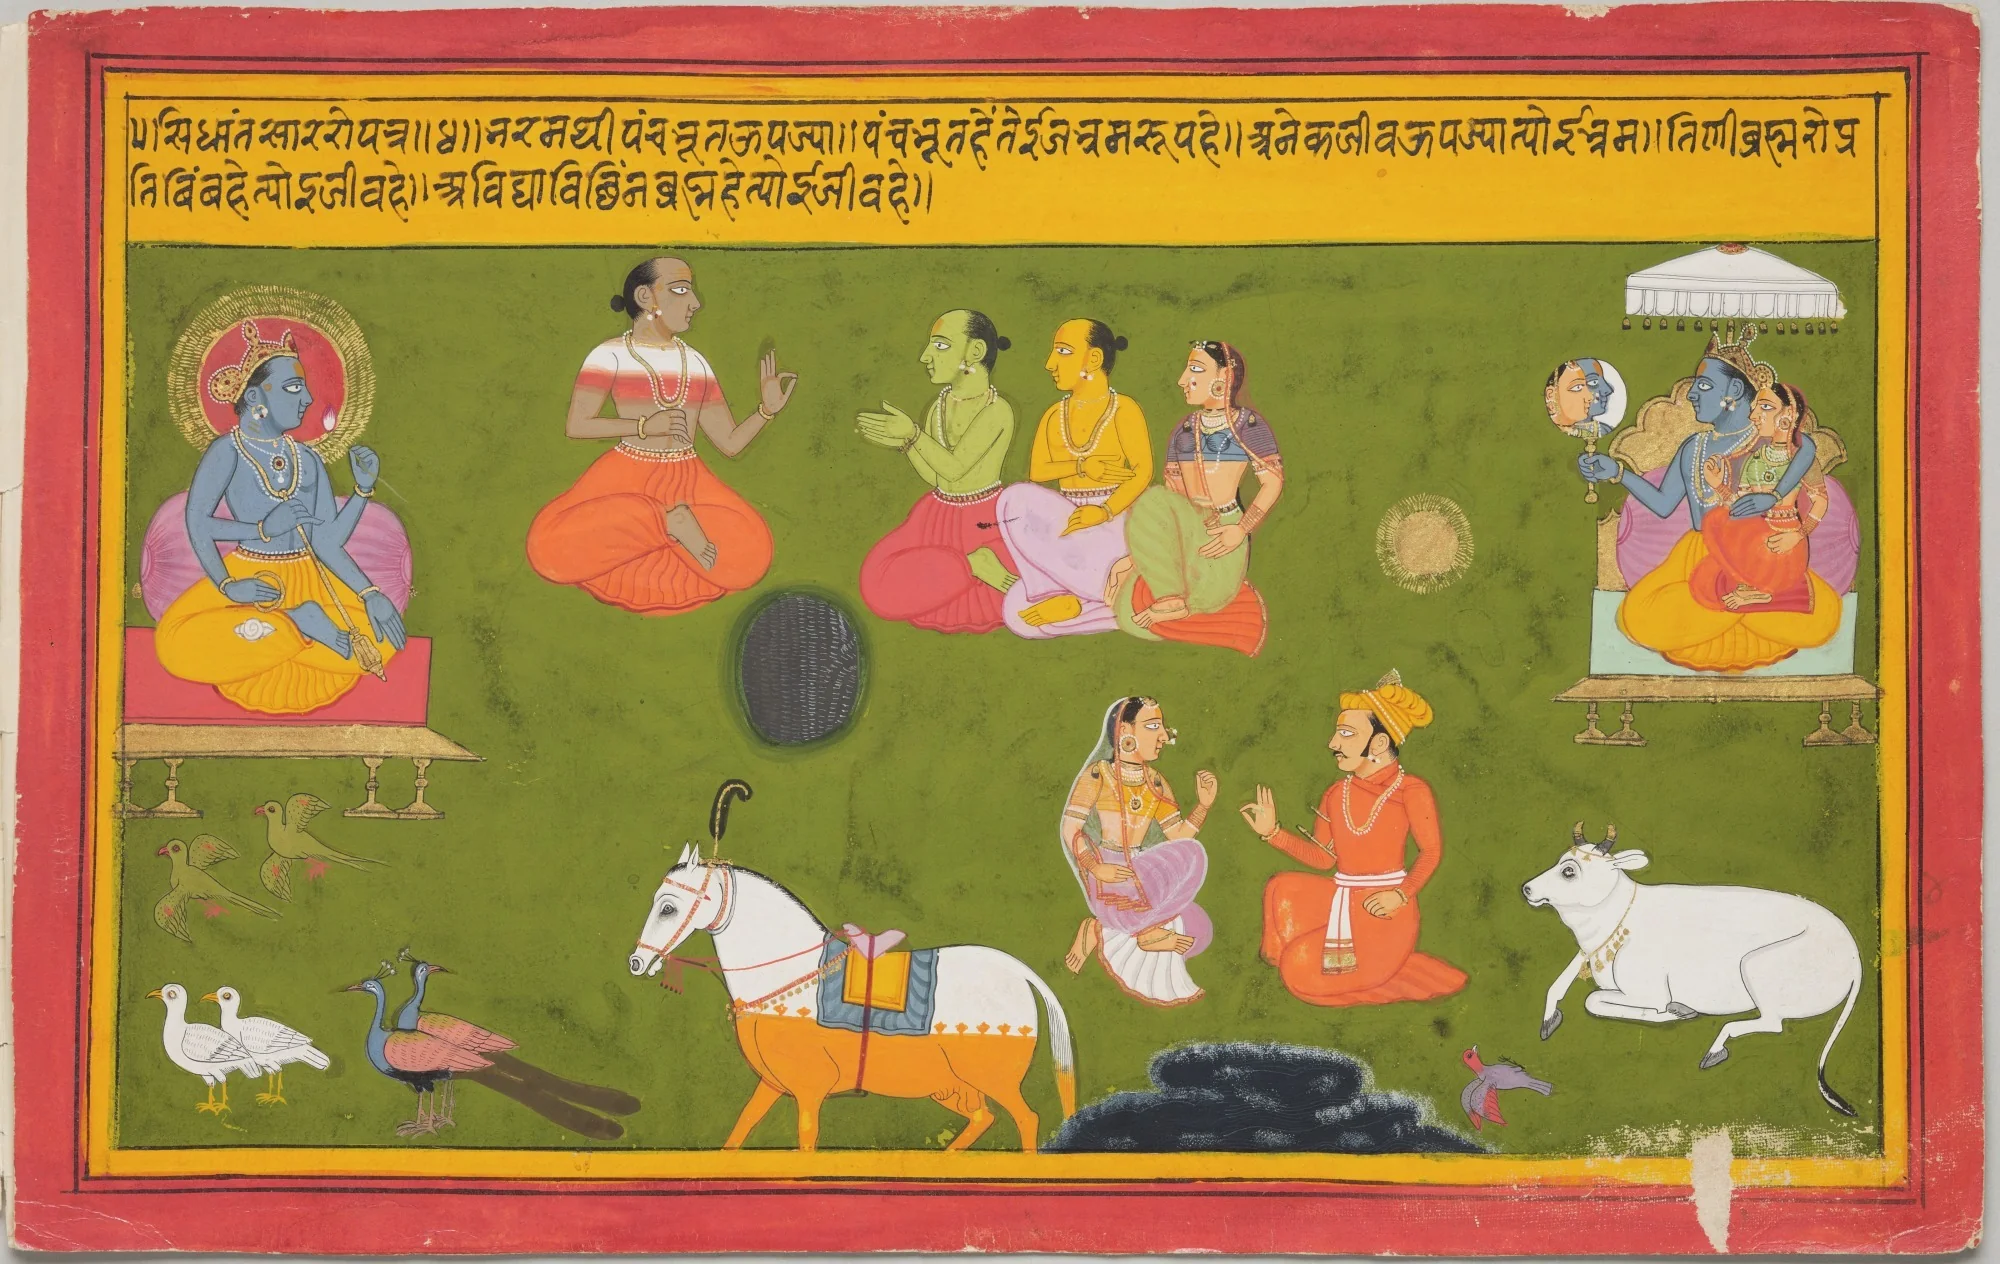 ५।सिधांतसाररोपत्र॥४॥भरमथीपंचभूतऊपज्या॥पंचभूतहेंतेईजभ्रमरूपहे॥अनेकजीवऊपज्यात्योईभ्रम॥तिणीब्रह्मरोप्र
तिबिंबहेत्योईजीवहे॥अविद्याविछिंनब्रह्महेत्योईजीवहे॥